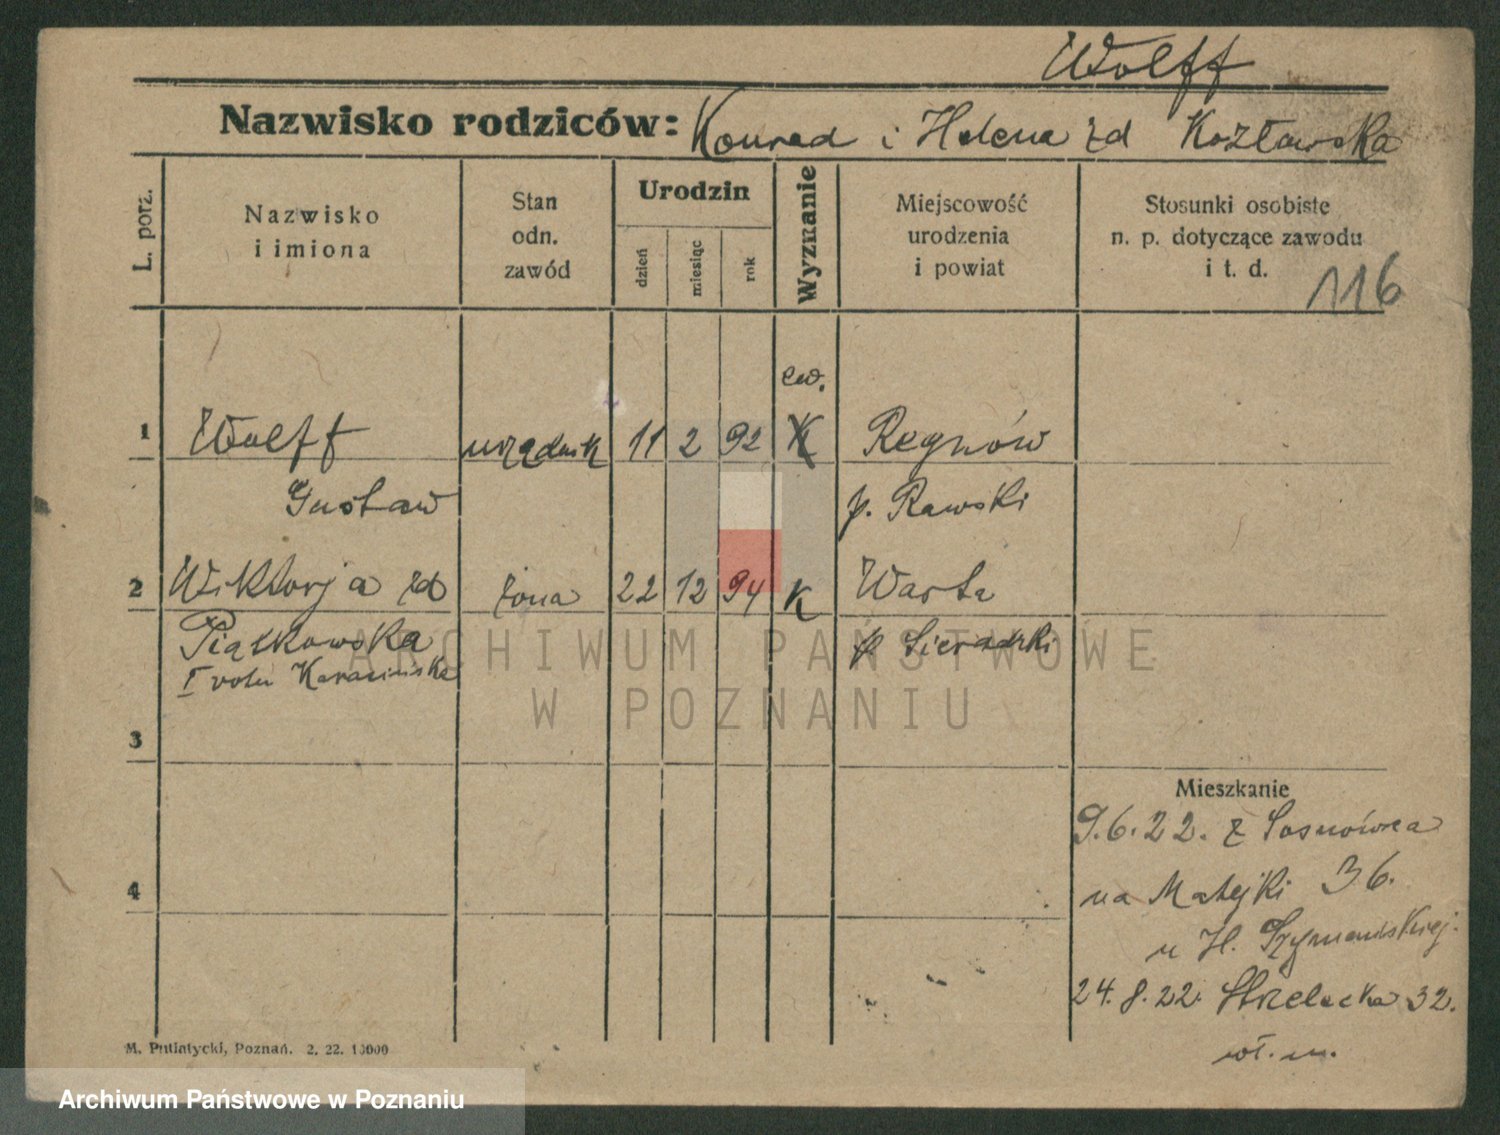 Wolff
Nazwisko rodziców: Konrad i Helena zd Kozłowska
L. porz.
Nazwisko
i imiona
Stan
odn.
zawód
Urodzin
dzień
miesiąc
rok
Wyznanie
Miejscowość
urodzenia
i powiat
Stosunki osobiste
n. p. dotyczące zawodu
i t. d.
116
ew.
1 Wolff urzędnik 11 2 92 K Regnów
Gustaw p. Rawski
2 Wiktorja zd żona 22 12 94 K Warta
Piątkowska p Sieradzki
I voto Karasińska
ARCHIWUM PAŃSTWOWE
W POZNANIU
3
Mieszkanie
9.6.22. z Sosnowca
4
na Matejki 36.
u H. Szymańskiej.
24.8.22. Strzelecka 32.
wł. m.
M. Putiatycki, Poznań. 2. 22. 10000
Archiwum Państwowe w Poznaniu